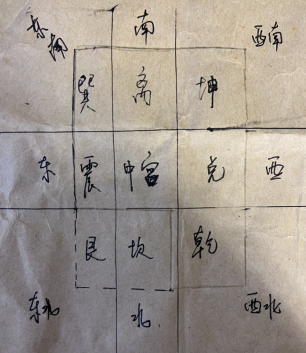 东南 南 西南
巽 离 坤
东 震 中宫 兑 西
艮 坎 乾
东北 北 西北